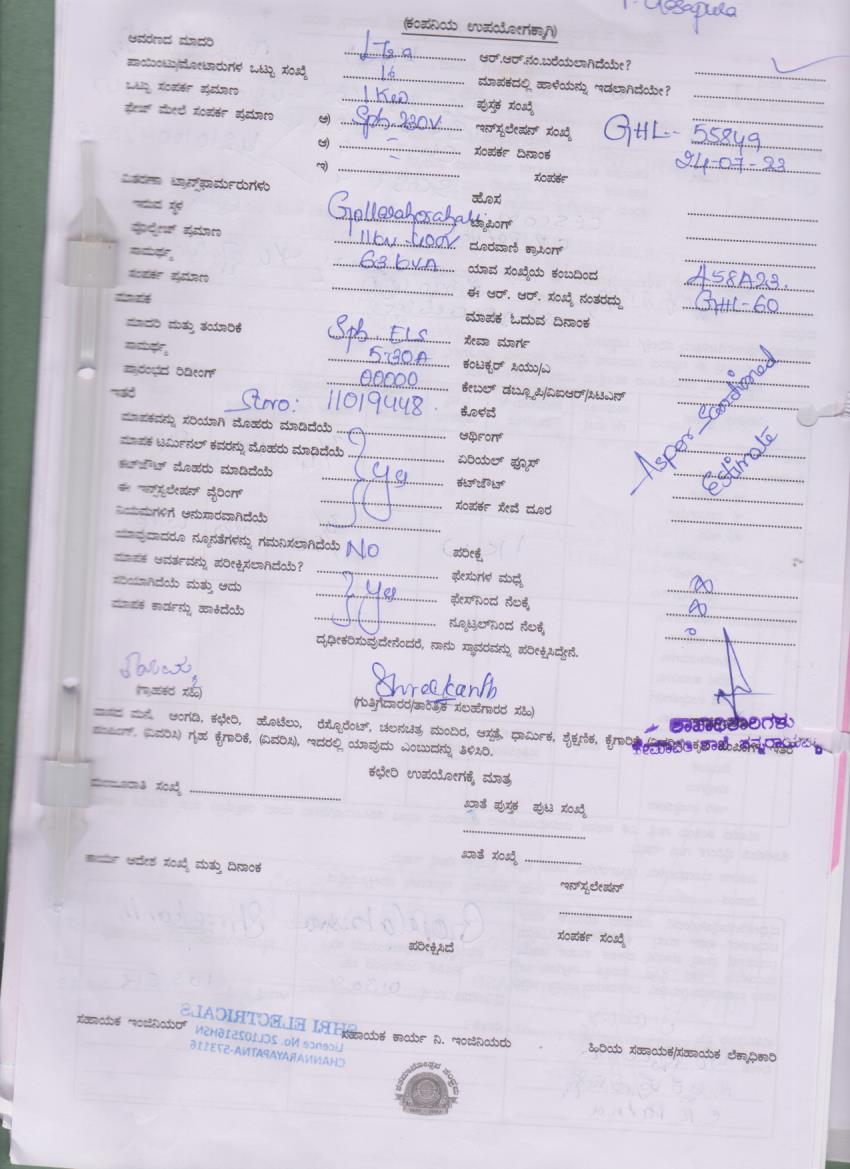 (ಕಂಪನಿಯ ಉಪಯೋಗಕ್ಕಾಗಿ)
ಆವರಣದ ಮಾದರಿ ಆರ್.ಆರ್.ನಂ.ಬರೆಯಲಾಗಿದೆಯೇ?
ಪಾಯಿಂಟು/ಮೋಟಾರುಗಳ ಒಟ್ಟು ಸಂಖ್ಯೆ 16 ಮಾಪಕದಲ್ಲಿ ಹಾಳೆಯನ್ನು ಇಡಲಾಗಿದೆಯೇ?
ಒಟ್ಟು ಸಂಪರ್ಕ ಪ್ರಮಾಣ 1 Kw ಪುಸ್ತಕ ಸಂಖ್ಯೆ
ಫೇಜ್ ಮೇಲೆ ಸಂಪರ್ಕ ಪ್ರಮಾಣ ಅ) Sph 230V ಇನ್‌ಸ್ಟಲೇಷನ್ ಸಂಖ್ಯೆ GHL-- 55849
ಆ) ಸಂಪರ್ಕ ದಿನಾಂಕ 24-07-23
ಇ) ಸಂಪರ್ಕ
ವಿತರಣಾ ಟ್ರಾನ್ಸ್‌ಫಾರ್ಮರುಗಳು ಹೊಸ
ಇರುವ ಸ್ಥಳ Gollarahosahalli ಟ್ಯಾಪಿಂಗ್
ವೊಲ್ಟೇಜ್ ಪ್ರಮಾಣ 11kv-400V ದೂರವಾಣಿ ಕ್ರಾಸಿಂಗ್
ಸಾಮರ್ಥ್ಯ 63 kVA ಯಾವ ಸಂಖ್ಯೆಯ ಕಂಬದಿಂದ A58A23.
ಸಂಪರ್ಕ ಪ್ರಮಾಣ ಈ ಆರ್. ಆರ್. ಸಂಖ್ಯೆ ನಂತರದ್ದು GHL-60
ಮಾಪಕ ಮಾಪಕ ಓದುವ ದಿನಾಂಕ
ಮಾದರಿ ಮತ್ತು ತಯಾರಿಕೆ Sph ELS ಸೇವಾ ಮಾರ್ಗ
ಸಾಮರ್ಥ್ಯ 5-30A ಕಂಟಕ್ಟರ್ ಸಿಯು/ಎ
ಪ್ರಾರಂಭದ ರಿಡೀಂಗ್ 00000 ಕೇಬಲ್ ಡಬ್ಲ್ಯೂಪಿ/ವಿಐಆರ್/ಸಿಟಿಎನ್
ಇತರೆ 11019448. ಕೊಳವೆ
ಮಾಪಕವನ್ನು ಸರಿಯಾಗಿ ಮೊಹರು ಮಾಡಿದೆಯೆ ಆರ್ಥಿಂಗ್
ಮಾಪಕ ಟರ್ಮಿನಲ್ ಕವರನ್ನು ಮೊಹರು ಮಾಡಿದೆಯೆ Yes ಏರಿಯಲ್ ಫ್ಯೂಸ್
ಕಟ್‌ಔಟ್ ಮೊಹರು ಮಾಡಿದೆಯೆ ಕಟ್‌ಔಟ್
As per Sanctioned
Estimate
ಈ ಇನ್‌ಸ್ಟಲೇಷನ್ ವೈರಿಂಗ್ ಸಂಪರ್ಕ ಸೇವೆ ದೂರ
ನಿಯಮಗಳಿಗೆ ಅನುಸಾರವಾಗಿದೆಯೆ
ಯಾವುದಾದರೂ ನ್ಯೂನತೆಗಳನ್ನು ಗಮನಿಸಲಾಗಿದೆಯೆ No ಪರೀಕ್ಷೆ
ಮಾಪಕ ಆವರ್ತವನ್ನು ಪರೀಕ್ಷಿಸಲಾಗಿದೆಯೆ? ಫೇಸುಗಳ ಮಧ್ಯೆ
ಸರಿಯಾಗಿದೆಯೆ ಮತ್ತು ಅದು Yes ಫೇಸ್‌ನಿಂದ ನೆಲಕ್ಕೆ
ಮಾಪಕ ಕಾರ್ಡನ್ನು ಹಾಕಿದೆಯೆ ನ್ಯೂಟ್ರಲ್‌ನಿಂದ ನೆಲಕ್ಕೆ
ದೃಢೀಕರಿಸುವುದೇನೆಂದರೆ, ನಾನು ಸ್ಥಾವರವನ್ನು ಪರೀಕ್ಷಿಸಿದ್ದೇನೆ.
Shreekanth
(ಗ್ರಾಹಕರ ಸಹಿ) (ಗುತ್ತಿಗೆದಾರರ/ತಾಂತ್ರಿಕ ಸಲಹೆಗಾರರ ಸಹಿ)
ಶಾಖಾಧಿಕಾರಿಗಳು
ವಾಸದ ಮನೆ, ಅಂಗಡಿ, ಕಛೇರಿ, ಹೊಟೆಲು, ರೆಸ್ಟೊರೆಂಟ್, ಚಲನಚಿತ್ರ ಮಂದಿರ, ಆಸ್ಪತ್ರೆ, ಧಾರ್ಮಿಕ, ಶೈಕ್ಷಣಿಕ, ಕೈಗಾರಿಕೆ
ಪಂಪಿಂಗ್, (ವಿವರಿಸಿ) ಗೃಹ ಕೈಗಾರಿಕೆ, (ವಿವರಿಸಿ), ಇದರಲ್ಲಿ ಯಾವುದು ಎಂಬುದನ್ನು ತಿಳಿಸಿರಿ.
ಕಛೇರಿ ಉಪಯೋಗಕ್ಕೆ ಮಾತ್ರ
ಮಂಜೂರಾತಿ ಸಂಖ್ಯೆ ಖಾತೆ ಪುಸ್ತಕ ಪುಟ ಸಂಖ್ಯೆ
ಖಾತೆ ಸಂಖ್ಯೆ
ಕಾರ್ಯ ಆದೇಶ ಸಂಖ್ಯೆ ಮತ್ತು ದಿನಾಂಕ ಇನ್‌ಸ್ಟಲೇಷನ್
ಪರೀಕ್ಷಿಸಿದೆ ಸಂಪರ್ಕ ಸಂಖ್ಯೆ
SHRI ELECTRICALS
Licence No. 2CL102516HSN
CHANNARAYAPATNA-573116
ಸಹಾಯಕ ಇಂಜಿನಿಯರ್ ಸಹಾಯಕ ಕಾರ್ಯ ನಿ. ಇಂಜಿನಿಯರು ಹಿರಿಯ ಸಹಾಯಕ/ಸಹಾಯಕ ಲೆಕ್ಕಾಧಿಕಾರಿ